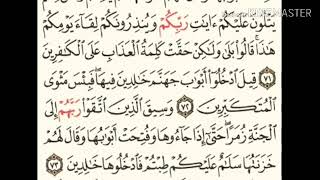 KINEMASTER
يَتْلُونَ عَلَيْكُمْ ءَايَٰتِ رَبِّكُمْ وَيُنذِرُونَكُمْ لِقَآءَ يَوْمِكُمْ
هَٰذَا ۚ قَالُوا۟ بَلَىٰ وَلَٰكِنْ حَقَّتْ كَلِمَةُ ٱلْعَذَابِ عَلَى ٱلْكَٰفِرِينَ
٧١ قِيلَ ٱدْخُلُوٓا۟ أَبْوَٰبَ جَهَنَّمَ خَٰلِدِينَ فِيهَا ۖ فَبِئْسَ مَثْوَى
ٱلْمُتَكَبِّرِينَ ٧٢ وَسِيقَ ٱلَّذِينَ ٱتَّقَوْا۟ رَبَّهُمْ إِلَى
ٱلْجَنَّةِ زُمَرًا ۖ حَتَّىٰٓ إِذَا جَآءُوهَا وَفُتِحَتْ أَبْوَٰبُهَا وَقَالَ لَهُمْ
خَزَنَتُهَا سَلَٰمٌ عَلَيْكُمْ طِبْتُمْ فَٱدْخُلُوهَا خَٰلِدِينَ ٧٣